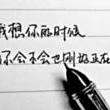 我想你的时候
你会不会也刚好正在